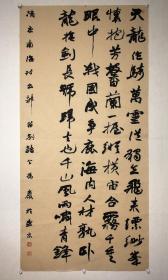 天龍作騎萬靈從獨立飛來縹緲峯
懷抱芳馨蘭一握縱橫宙合霧千重
眼中戰國成爭鹿海內人材孰臥
龍撫劍長號歸去也千山風雨嘯青鋒
南海詩出都留別諸公